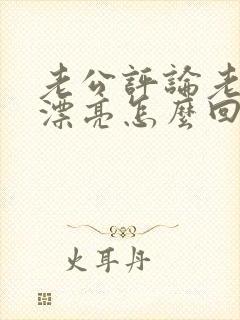 老公評論老
漂亮怎麼回
火耳丹